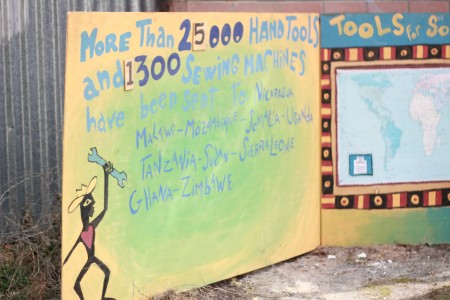 MORE THAN 25000 HAND TOOLS
and 1300 SEWING MACHINES
have been SENT To NICARAGUA
MALAWI-MOZAMBIQUE-SOMALIA-UGANDA
TANZANIA-SUDAN-SIERRA LEONE
GHANA-ZIMBABWE
TOOLS for